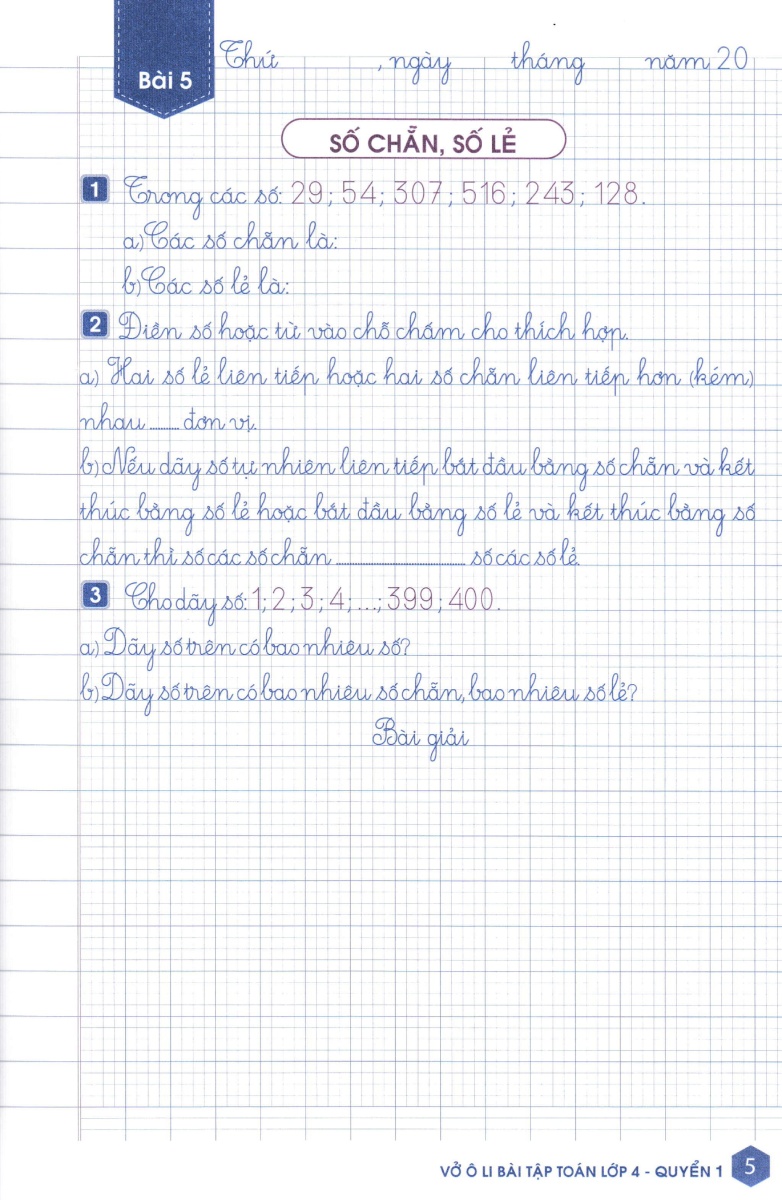 Bài 5
Thứ , ngày tháng năm 20
SỐ CHẴN, SỐ LẺ
1 Trong các số: 29; 54; 307; 516; 243; 128.
a) Các số chẵn là:
b) Các số lẻ là:
2 Điền số hoặc từ vào chỗ chấm cho thích hợp.
a) Hai số lẻ liên tiếp hoặc hai số chẵn liên tiếp hơn (kém)
nhau ........ đơn vị.
b) Nếu dãy số tự nhiên liên tiếp bắt đầu bằng số chẵn và kết
thúc bằng số lẻ hoặc bắt đầu bằng số lẻ và kết thúc bằng số
chẵn thì số các số chẵn .................................... số các số lẻ.
3 Cho dãy số: 1; 2; 3; 4; ...; 399; 400.
a) Dãy số trên có bao nhiêu số?
b) Dãy số trên có bao nhiêu số chẵn, bao nhiêu số lẻ?
Bài giải
VỞ Ô LI BÀI TẬP TOÁN LỚP 4 - QUYỂN 1 5